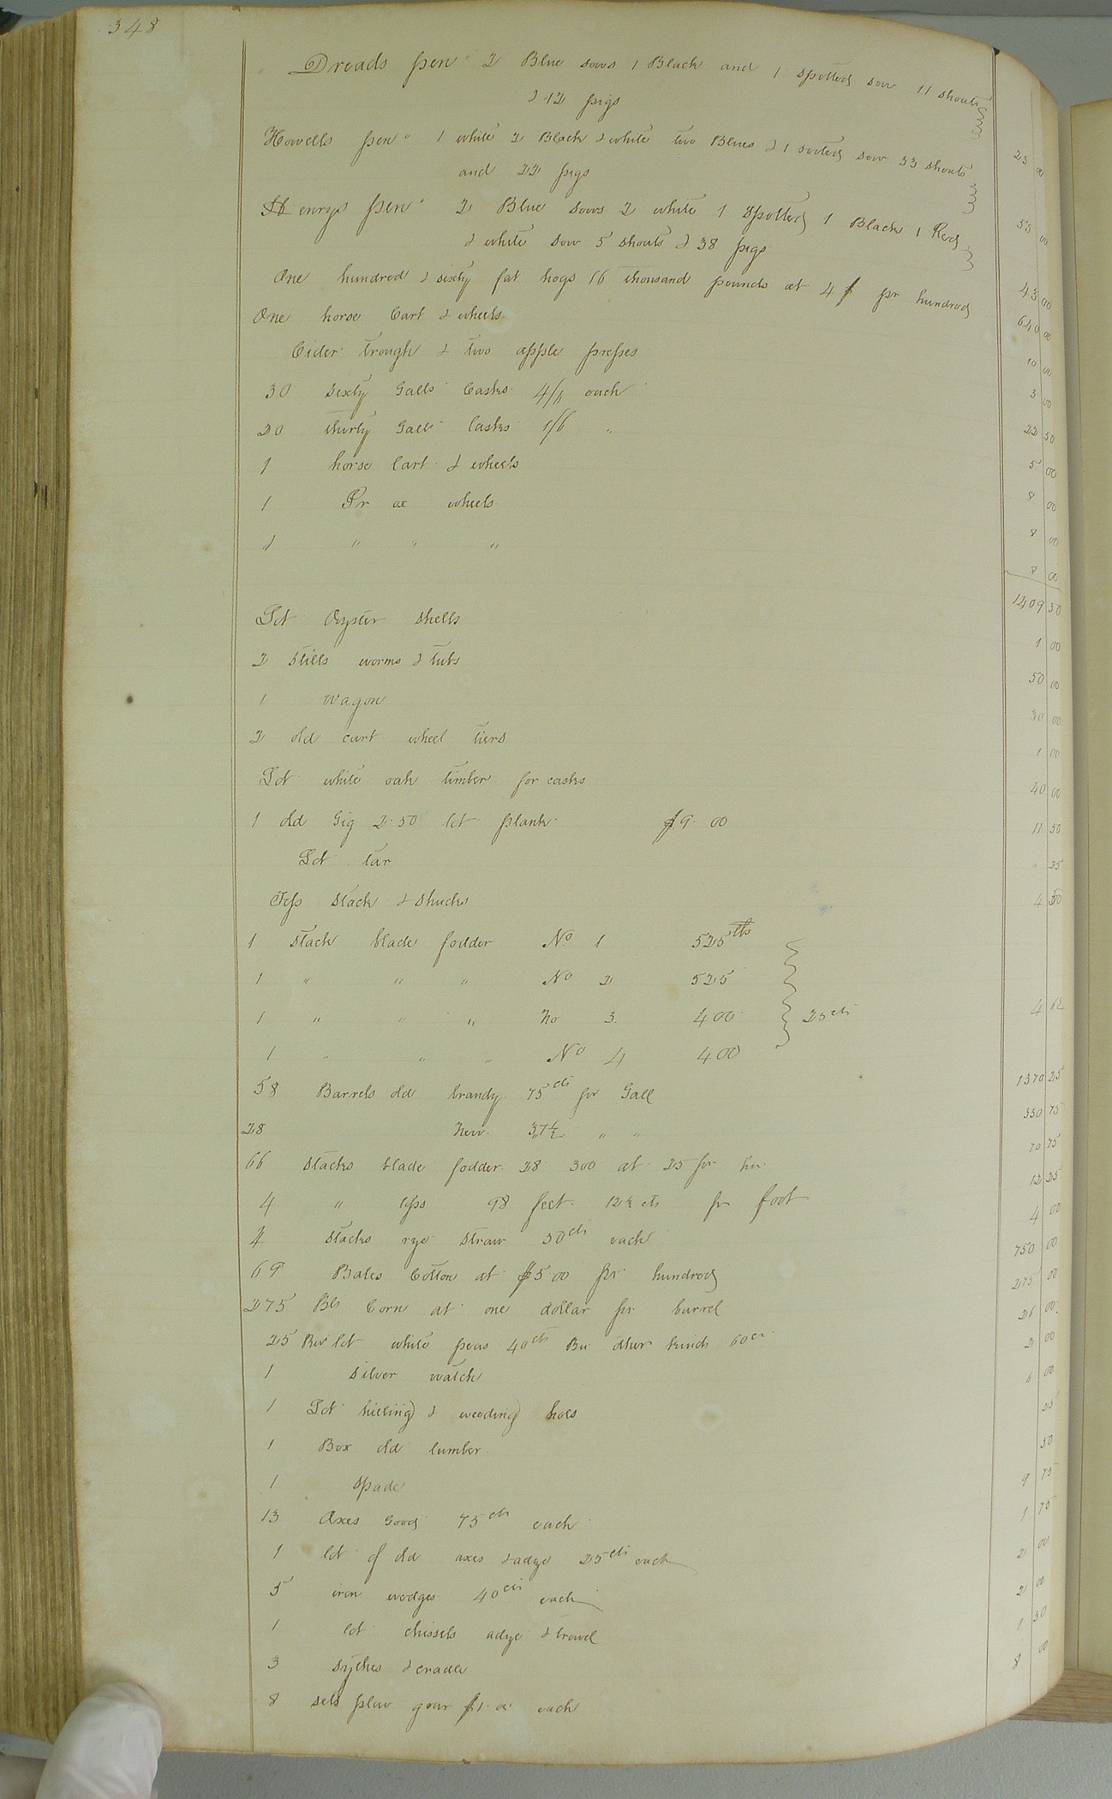 348
Dreads pen 2 Blue sows 1 Black and 1 spotted sow 11 shouts
& 12 pigs 25 00
Howells pen 1 white 2 Black & white two Blues & 1 sow 33 shouts
and 22 pigs 55 00
Henrys pen 2 Blue sows 2 white 1 Spotted 1 Black 1 Red
& white sow 5 shouts & 38 pigs 43 00
One hundred & sixty fat hogs 16 thousand pounds at 4 $ pr hundred 640 00
One horse Cart & wheels 10 00
Cider trough & two apple presses 3 00
30 sixty Galls Casks 4/6 each 22 50
20 thirty Galls Casks 1/6 " 5 00
1 horse Cart & wheels 8 00
1 Pr ox wheels 8 00
1 " " " 8 00
1409 50
Lot Oyster shells 1 00
2 Stills worms & tubs 50 00
1 wagon 30 00
2 old cart wheel tiers 1 00
Lot white oak timber for casks 40 00
1 old Gig 2.50 lot plank $9.00 11 50
Lot tar " 25
Tops stack & shucks 4 50
1 stack blade fodder No 1 525 lbs
1 " " " No 2 525
1 " " " No 3 400 25 cts 4 62
1 " " " No 4 400
58 Barrels old brandy 75 cts pr Gall 1370 25
28 New 37½ " " 330 75
66 stacks blade fodder 28 300 at 25 pr hu 70 75
4 " tops 98 feet 12½ cts pr foot 12 25
4 stacks rye straw 50 cts each 4 00
69 Bales Cotton at $5 00 pr hundred 750 00
275 Bls Corn at one dollar pr barrel 275 00
25 Bu lot white peas 40 cts Bu other kinds 60 cts 26 00
1 silver watch 2 00
1 Lot hilling & weeding hoes 6 00
1 Box old lumber 25
1 Spade 50
13 Axes Good 75 cts each 9 75
1 lot of old axes & adze 25 cts each 1 75
5 iron wedges 40 cts each 2 00
1 lot chissels adze & trowel 2 00
3 sythes & cradle 1 50
8 sets plow gear $1.00 each 8 00